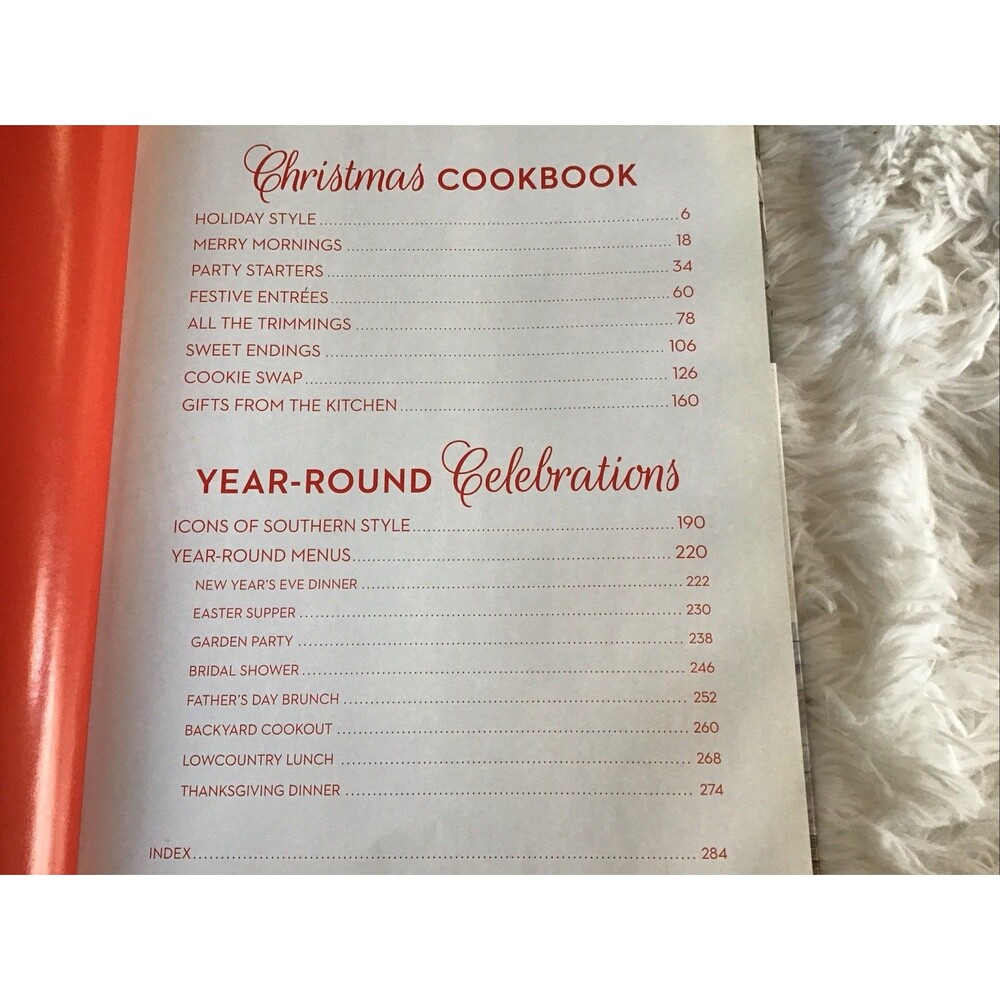 Christmas COOKBOOK
HOLIDAY STYLE 6
MERRY MORNINGS 18
PARTY STARTERS 34
FESTIVE ENTRÉES 60
ALL THE TRIMMINGS 78
SWEET ENDINGS 106
COOKIE SWAP 126
GIFTS FROM THE KITCHEN 160
YEAR-ROUND Celebrations
ICONS OF SOUTHERN STYLE 190
YEAR-ROUND MENUS 220
NEW YEAR'S EVE DINNER 222
EASTER SUPPER 230
GARDEN PARTY 238
BRIDAL SHOWER 246
FATHER'S DAY BRUNCH 252
BACKYARD COOKOUT 260
LOWCOUNTRY LUNCH 268
THANKSGIVING DINNER 274
INDEX 284